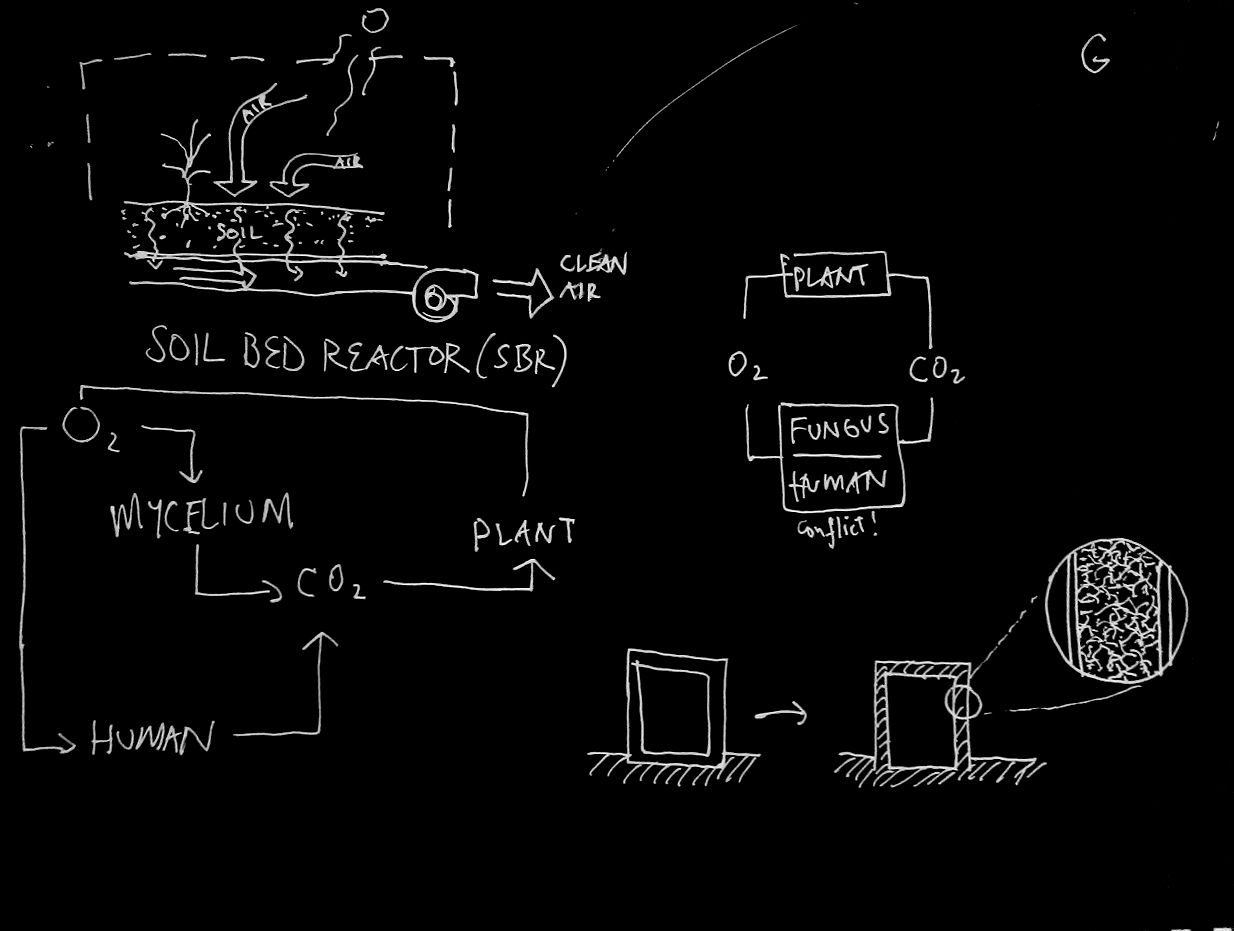 G
AIR
AIR
SOIL
CLEAN
AIR
SOIL BED REACTOR (SBR)
PLANT
O₂
CO₂
FUNGUS
HUMAN
conflict!
O₂
MYCELIUM
PLANT
CO₂
HUMAN